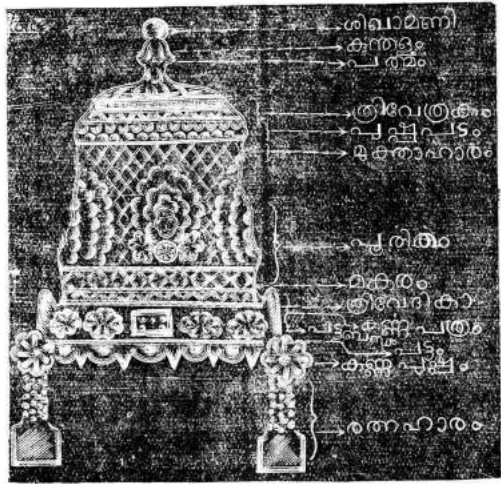 ശിഖാമണി
കുന്തളം
പത്മം
ത്രിവേത്രകം
പുഷ്പപടം
മുക്താഹാരം
പൂരികം
മകരം
ത്രിവേദികാ
കർണ്ണപത്രം
പട്ടം
കർണ്ണപുഷ്പം
രത്നഹാരം